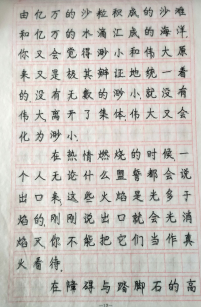 由亿万的沙粒积成的沙滩
和亿万的水滴汇成的海洋,
你又会觉得渺小和伟大原
来又是极其辩证地统一着
的,没有无数的渺小,就没有
伟大,离开了集体,伟大又会
化为渺小.
在热情燃烧的时候,一
个人无论什么盟誓都会说
出口来,这些火焰是光多于
焰的,刚刚说出口就会光消
焰灭,你不能把它们当作真
火看待.
在障碍与踏脚石的高